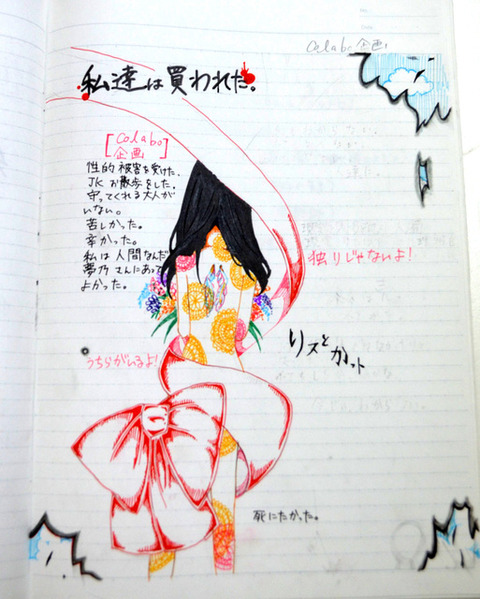 Colabo企画
私達は買われた。
[Colabo
企画]
性的被害を受けた。
JKお散歩をした。
守ってくれる大人が
いない。
苦しかった。
辛かった。
私は人間なんだ
夢乃さんにあって
よかった。
独りじゃないよ!
うちらがいるよ!
リストカット
死にたかった。